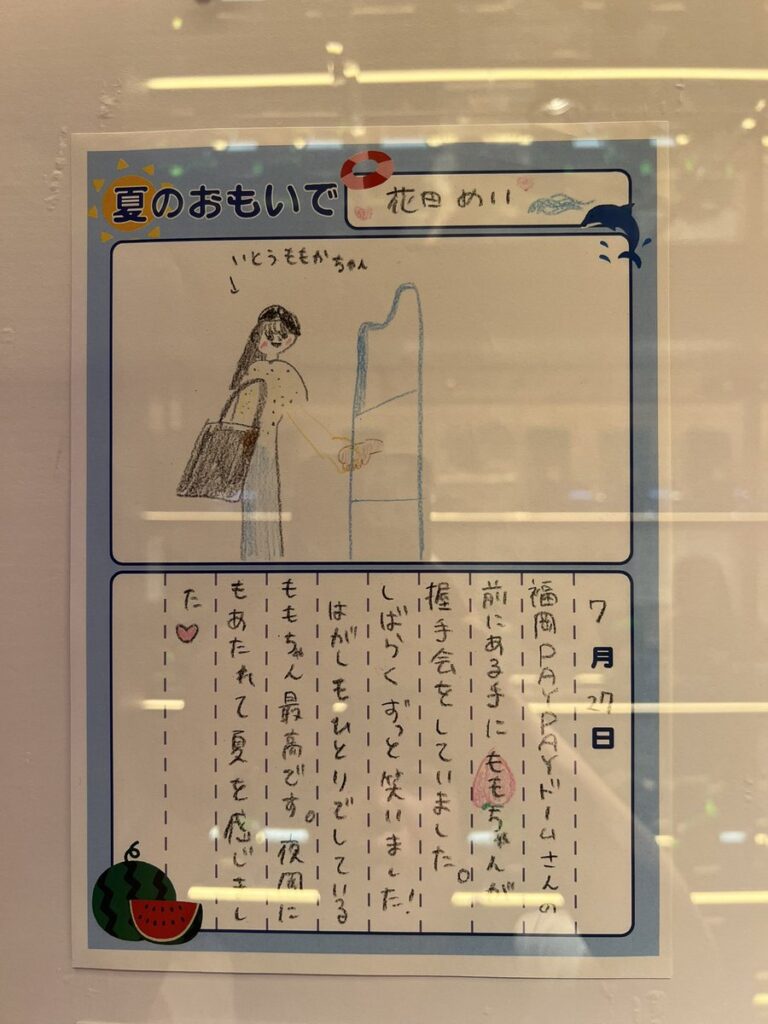 夏のおもいで
花田 めい
いとうももかちゃん
7月27日
福岡PAYPAYドームさんの
前にある手にももちゃんが
握手会をしていました。
しばらくずっと笑いました!
はがしもひとりでしている
ももちゃん最高です。夜風に
もあたれて夏を感じまし
た